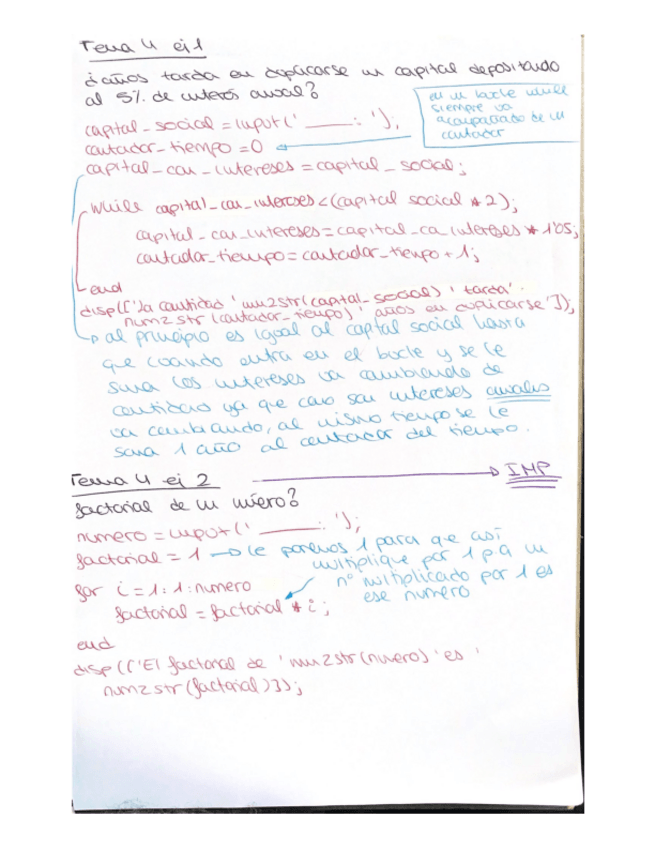 Tema 4 ej 1
¿años tarda en duplicarse un capital depositando
al 5% de interés anual?
en un bucle while
siempre va
acompañado de un
contador
capital_social = input(' _____: ');
contador_tiempo = 0
capital_con_intereses = capital_social;
while capital_con_intereses < (capital social * 2);
capital_con_intereses = capital_con_intereses * 1'05;
contador_tiempo = contador_tiempo + 1;
end
disp(['la cantidad ' num2str(capital_social) ' tarda'
num2str(contador_tiempo) ' años en duplicarse']);
al principio es igual al capital social hasta
que cuando entra en el bucle y se le
suma los intereses va cambiando de
cantidad ya que como son intereses anuales
va cambiando, al mismo tiempo se le
suma 1 año al contador del tiempo.
Tema 4 ej 2 → IMP
factorial de un número?
numero = input(' _____: ');
factorial = 1 → le ponemos 1 para que así
multiplique por 1 un
nº multiplicado por 1 es
ese numero
for i = 1:1:numero
factorial = factorial * i;
end
disp(['El factorial de ' num2str(numero) ' es '
num2str(factorial)]);